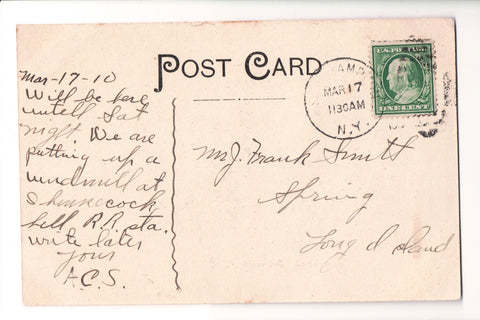 POST CARD
Mar-17-10
Will be here
untill Sat
night. We are
putting up a
windmill at
Shinnecock
hill R.R. sta.
write later
yours
A.C.S.
AMP
MAR 17
1130AM
N.Y.
U.S. POSTAGE
ONE CENT
Mr J. Frank Smith
Spring
Long Island